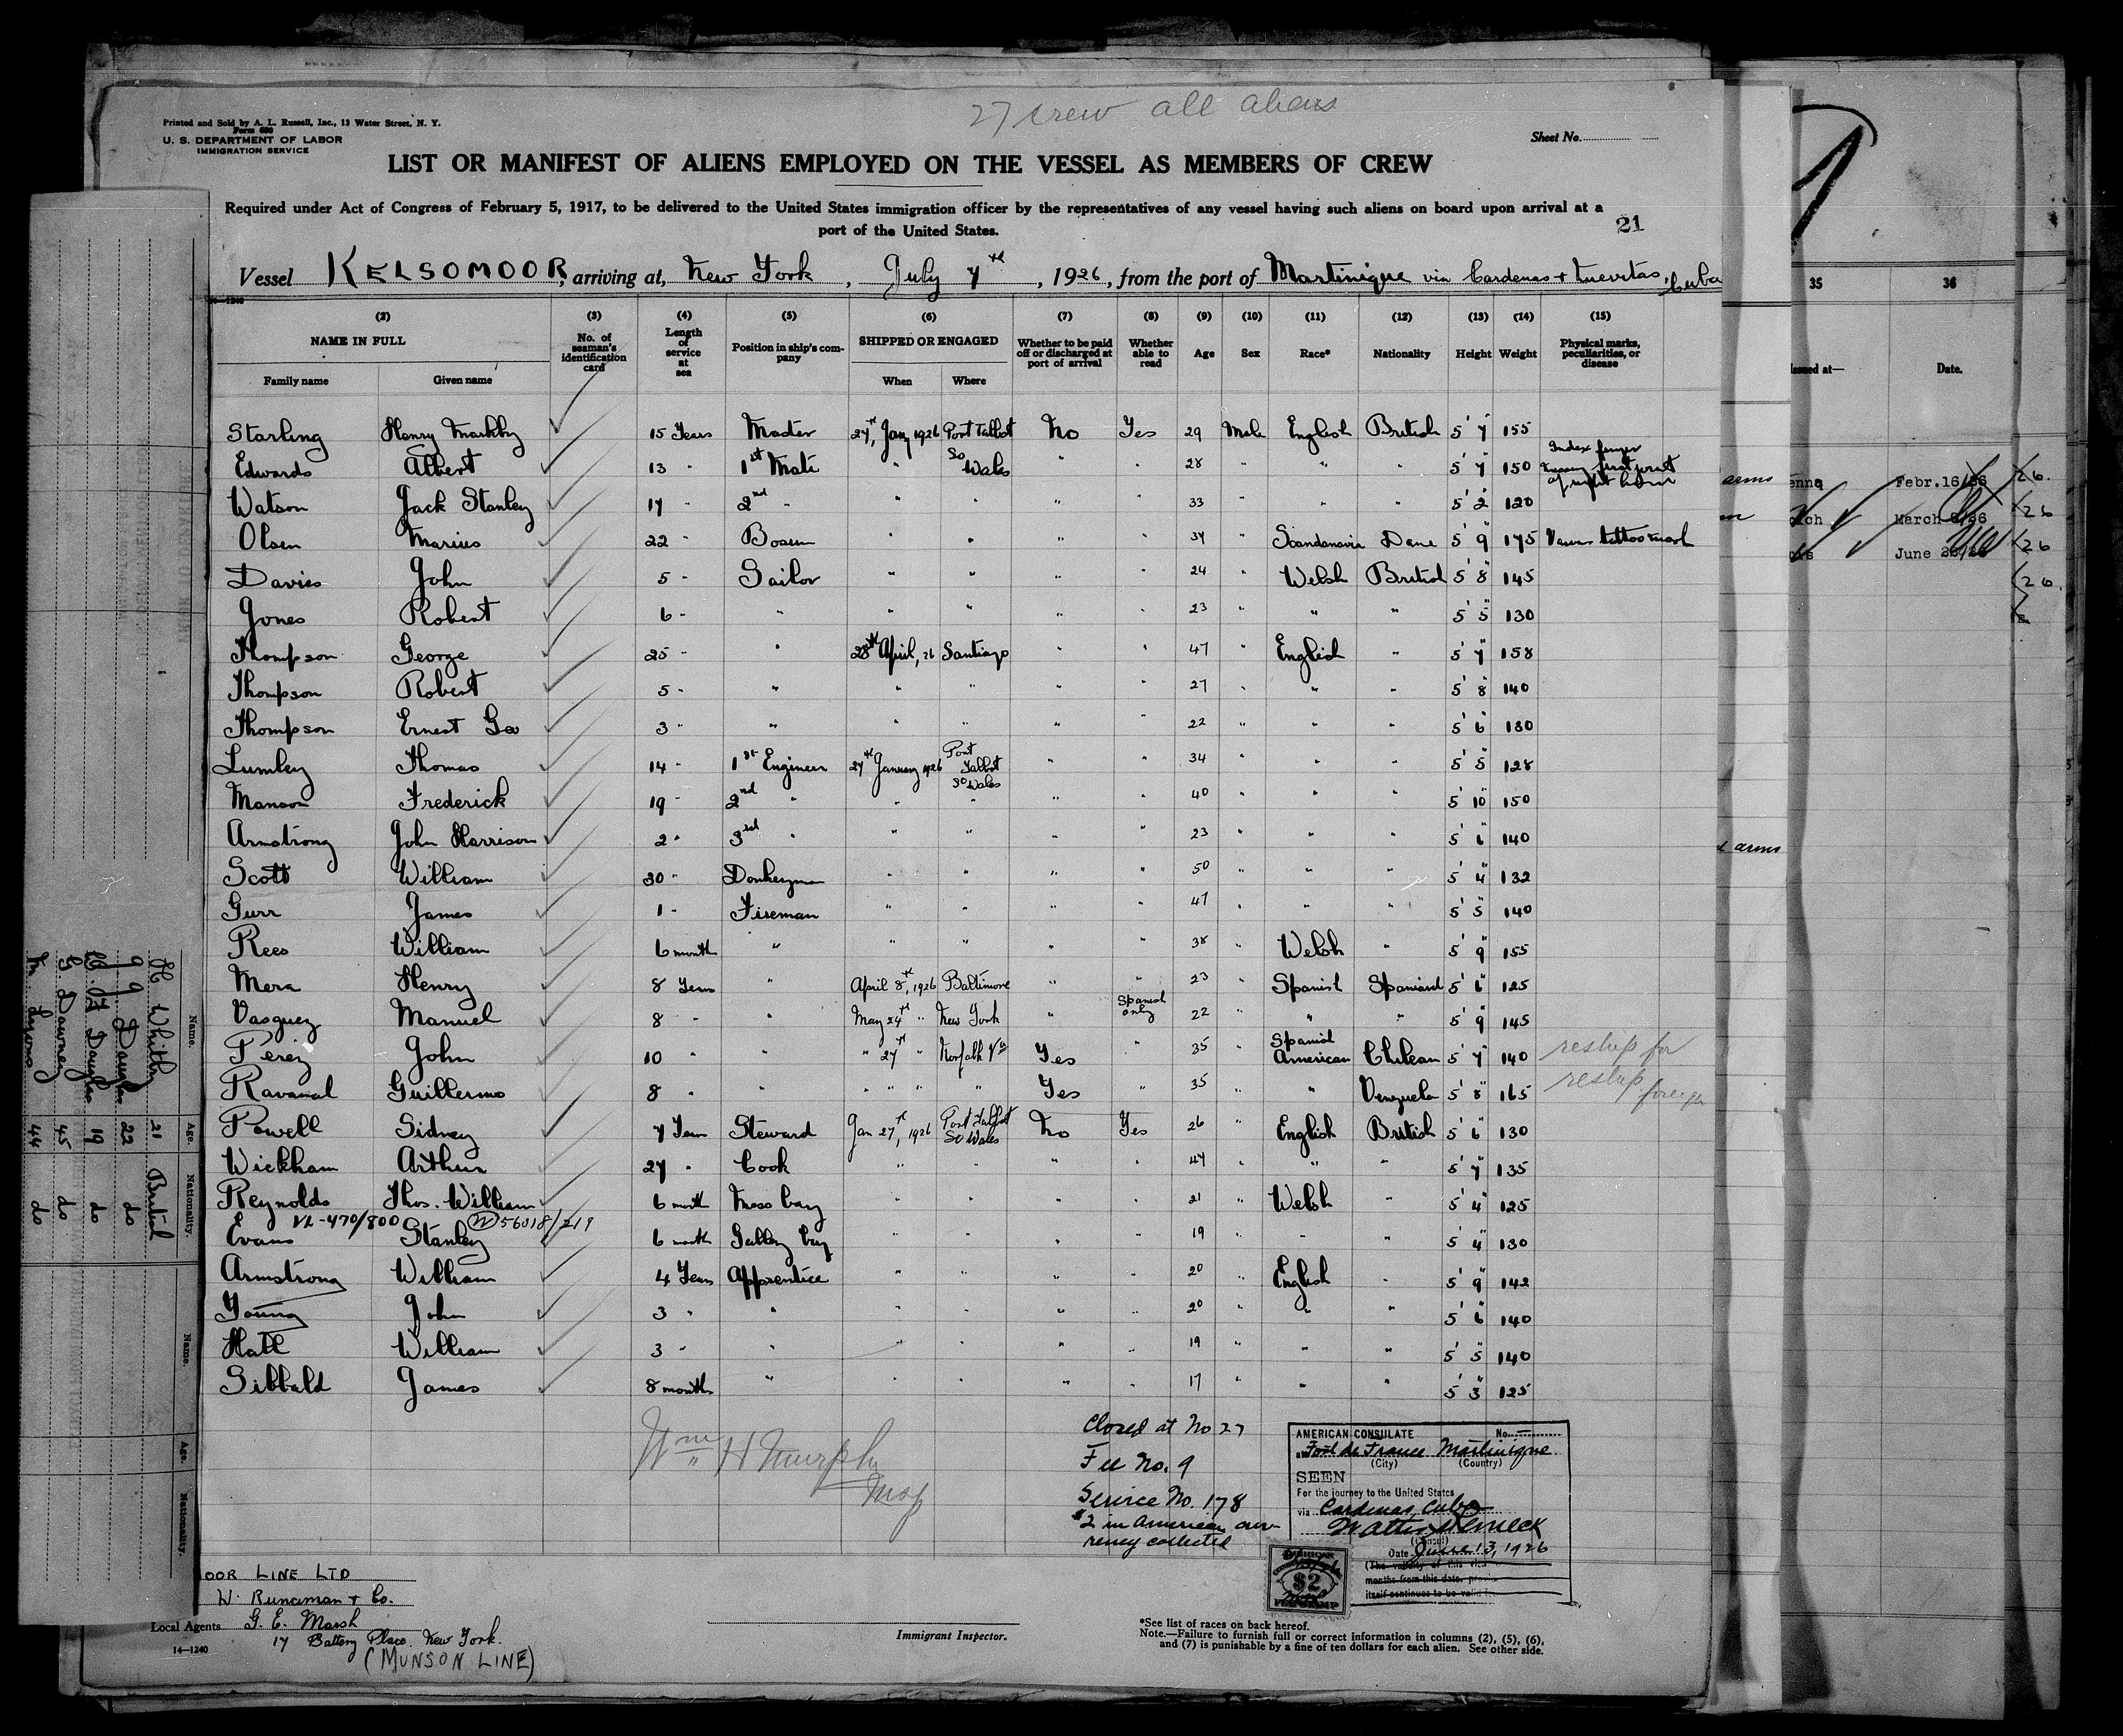 27 crew all aliens
Printed and Sold by A. L. Russell, Inc., 13 Water Street, N. Y.
Form 680
U. S. DEPARTMENT OF LABOR
IMMIGRATION SERVICE
Sheet No.
LIST OR MANIFEST OF ALIENS EMPLOYED ON THE VESSEL AS MEMBERS OF CREW
Required under Act of Congress of February 5, 1917, to be delivered to the United States immigration officer by the representatives of any vessel having such aliens on board upon arrival at a
port of the United States.
21
Vessel KELSOMOOR, arriving at, New York, July 7th, 1926, from the port of Martinique via Cardenas + Nuevitas, Cuba
14—1240
(2) (3) (4) (5) (6) (7) (8) (9) (10) (11) (12) (13) (14) (15)
NAME IN FULL No. of seaman's identification card Length of service at sea Position in ship's company SHIPPED OR ENGAGED Whether to be paid off or discharged at port of arrival Whether able to read Age Sex Race* Nationality Height Weight Physical marks, peculiarities, or disease
Family name Given name When Where
Starling Henry Markby 15 Years Master 27th, Jany 1926 Port Talbot No Yes 29 Male English British 5' 7" 155
Edwards Albert 13 " 1st Mate " So Wales " " 28 " " " 5' 7" 150 Index finger first joint of right hand
Watson Jack Stanley 17 " 2nd " " " " " 33 " " " 5' 2" 120
Olsen Marius 22 " Bosun " " " " 34 " Scandanavia Dane 5' 9" 175 Various tattoo mark
Davies John 5 " Sailor " " " " 24 " Welsh British 5' 8" 145
Jones Robert 6 " " " " " " 23 " " " 5' 5" 130
Thompson George 25 " " 28th April, 26 Santiago " " 47 " English " 5' 7" 158
Thompson Robert 5 " " " " " " 27 " " " 5' 8" 140
Thompson Ernest Geo 3 " " " " " " 22 " " " 5' 6" 130
Lumley Thomas 14 " 1st Engineer 27th January 1926 Port Talbot So Wales " " 34 " " " 5' 5" 128
Manson Frederick 19 " 2nd " " " " " 40 " " " 5' 10" 150
Armstrong John Harrison 2 " 3rd " " " " " 23 " " " 5' 6" 140
Scott William 30 " Donkeyman " " " " 50 " " " 5' 4" 132
Gurr James 1 " Fireman " " " " 47 " " " 5' 5" 140
Rees William 6 month " " " " " 38 " Welsh " 5' 9" 155
Mera Henry 8 Years " April 8th, 1926 Baltimore " " 23 " Spanish Spaniard 5' 6" 125
Vasquez Manuel 8 " " May 24th " New York " Spanish only 22 " " " 5' 9" 145
Perez John 10 " " " 27th " Norfolk Va Yes " 35 " Spanish American Chilean 5' 7" 140 reship for
Ravanal Guillermo 8 " " " " " " Yes " 35 " " Venezuela 5' 8" 165 reship foreign
Powell Sidney 7 Years Steward Jan 27th, 1926 Port Talbot So Wales No Yes 26 " English British 5' 6" 130
Wickham Arthur 27 " Cook " " " " 47 " " " 5' 7" 135
Reynolds Thos. William 6 month Mess boy " " " " 21 " Welsh " 5' 4" 125
VL-470/800 (N) 56018/219
Evans Stanley 6 month Galley boy " " " " 19 " " " 5' 4" 130
Armstrong William 4 Years Apprentice " " " " 20 " English " 5' 9" 142
Young John 3 " " " " " " 20 " " " 5' 6" 140
Hall William 3 " " " " " " 19 " " " 5' 5" 140
Sibbald James 8 months " " " " " 17 " " " 5' 3" 125
Wm H Murphy
Closed at No 27
Fee No. 9
Service No. 178
$2 in American currency collected
AMERICAN CONSULATE No.
Fort de France Martinique
(City) (Country)
SEEN
For the journey to the United States
via Cardenas, Cuba
(Consul)
Date June 13, 1926
(The validity of this visa
months from this date, provi
itself continues to be valid
$2
FEE STAMP
OOR LINE LTD
W. Runciman + Co.
Local Agents G. E. Marsh
17 Battery Place. New York.
(MUNSON LINE)
14—1240
Immigrant Inspector.
*See list of races on back hereof.
Note.—Failure to furnish full or correct information in columns (2), (5), (6),
and (7) is punishable by a fine of ten dollars for each alien. See other side.
Name. Age. Nationality.
H Whitby 21 British
J J Douglas 22 do
19 do
G Downey 45 do
M. Lyons 44 do
Name. Age. Nationality.
35 36
Issued at— Date.
arms
Febr. 16/26
March
June
d arms